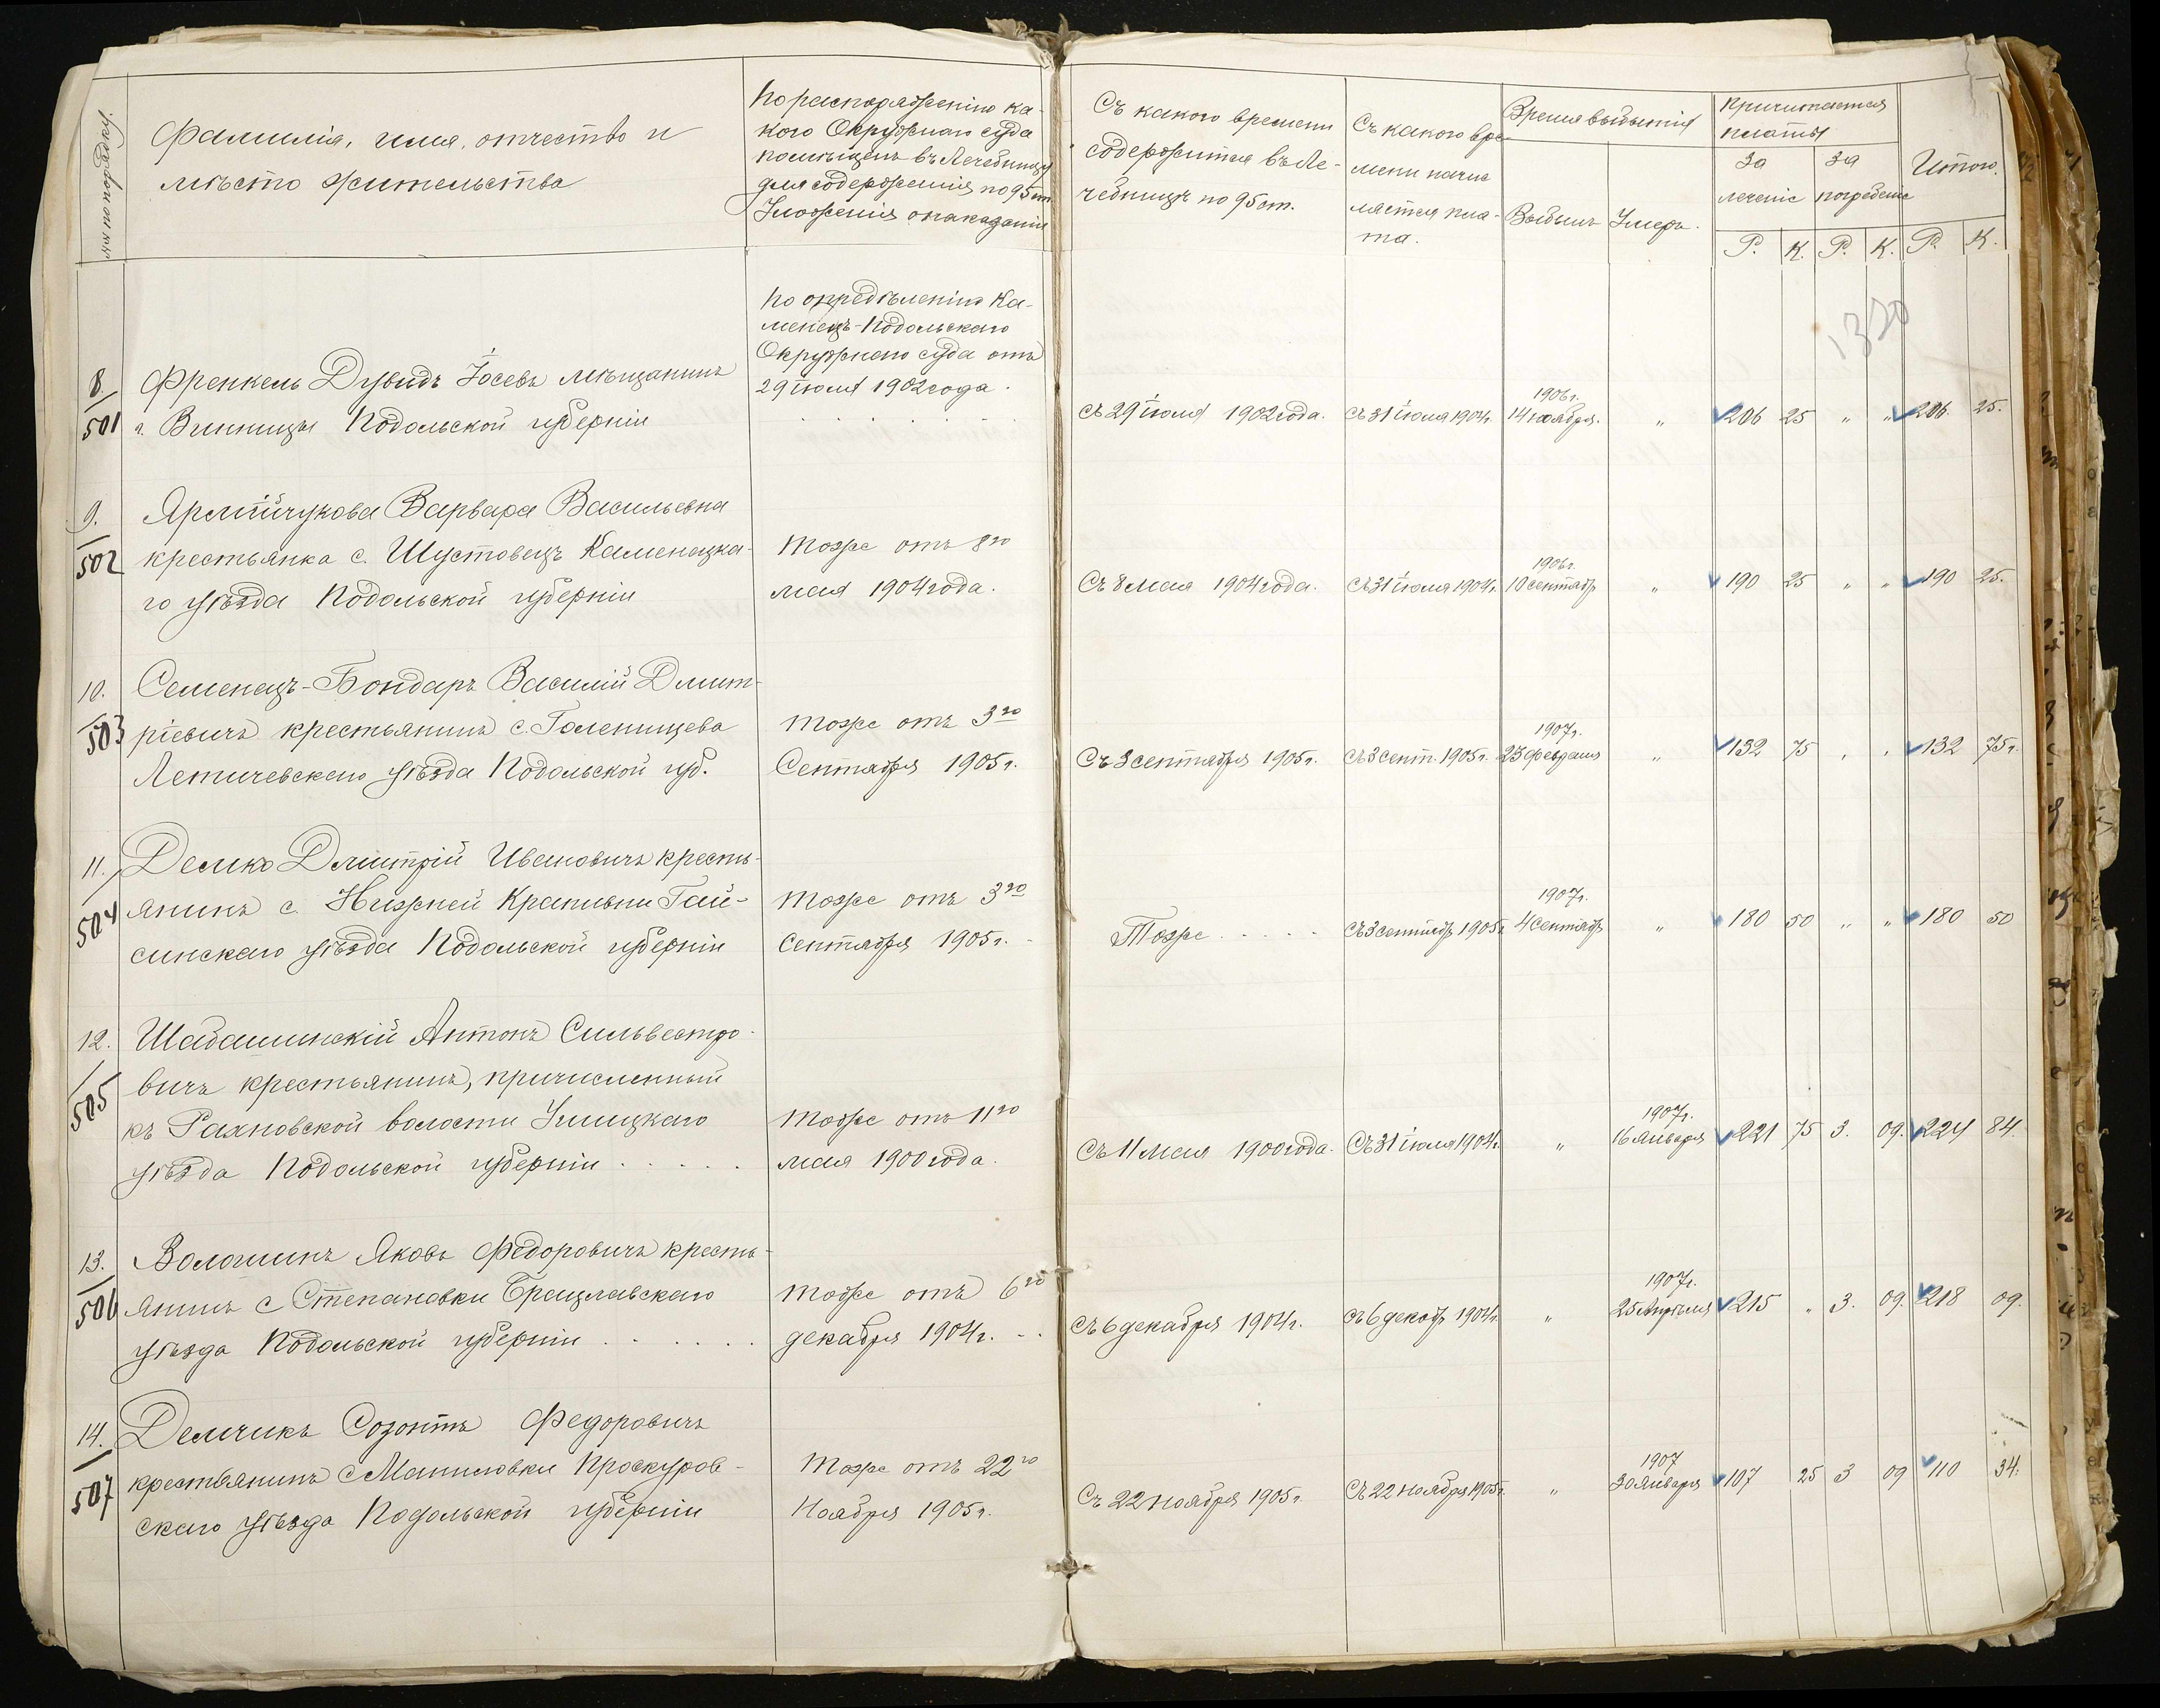 № по порядку
Фамилія, имя, отчество и
мѣсто жительства
По распоряженію ка-
кого Окружнаго суда
помѣщенъ въ Лечебницу
для содержанія по 95 ст.
Уложенія о наказаніи
Съ какого времени
содержится въ Ле-
чебницѣ по 95 ст.
Съ какого вре-
мени начис
ляется пла-
та.
Время выбытія
Выбылъ Умеръ.
Причитается
платы
За За
леченіе погребеніе
Итого.
Р. К. Р. К. Р. К.
1320
8/501
Френкель Дувидъ Іосевъ мѣщанинъ
г. Винницы Подольской губерніи
По опредѣленію Ка-
менецъ-Подольскаго
Окружнаго суда отъ
29 іюля 1902 года.
съ 29 іюля 1902 года. съ 31 іюля 1904 г. 1906 г.
14 ноября. " 206 25 " " 206. 25.
9./502
Ярмійчукова Варвара Васильевна
крестьянка с. Шустовецъ Каменецка-
го уѣзда Подольской губерніи
тоже отъ 8го
мая 1904 года.
Съ 8 мая 1904 года. съ 31 іюля 1904 г. 1906 г.
10 сентябр " 190 25 " " 190 25.
10./503
Семенецъ-Бондаръ Василій Дмит-
ріевичъ крестьянинъ с. Голенищева
Летичевскаго уѣзда Подольской губ.
тоже отъ 3го
Сентября 1905 г.
Съ 3 сентября 1905 г. съ 3 сент. 1905 г. 1907 г.
23 февраля " 132 75 " " 132 75.
11./504
Демко Дмитрій Ивановичъ кресть-
янинъ с. Нижней Крапивни Гай-
синскаго уѣзда Подольской губерніи
тоже отъ 3го
сентября 1905 г.
Тоже . . . . . съ 3 сентябр 1905 г 1907 г.
4 сентябр " 180 50 " " 180 50
12./505
Шабашинскій Антонъ Сильвестро-
вичъ крестьянинъ, причисленный
къ Рахновской волости Ушицкаго
уѣзда Подольской губерніи . . . . .
тоже отъ 11го
мая 1900 года.
Съ 11 мая 1900 года. Съ 31 іюля 1904 г. " 1907 г.
16 января 221 75 3. 09. 224 84.
13./506
Волошинъ Яковъ Федоровичъ кресть-
янинъ с Степановки Брацлавскаго
уѣзда Подольской губерніи . . . . .
тоже отъ 6го
декабря 1904 г. - .
Съ 6 декабря 1904 г. съ 6 декабр 1904 г. " 1907 г.
25 Апрѣля 215 " 3. 09. 218 09.
14./507
Демчикъ Созонтъ Федоровичъ
крестьянинъ с Маниловки Проскуров-
скаго уѣзда Подольской губерніи
тоже отъ 22го
Ноября 1905 г.
Съ 22 ноября 1905 г. Съ 22 ноября 1905 г. " 1907
30 января 107 25 3 09 110 34.